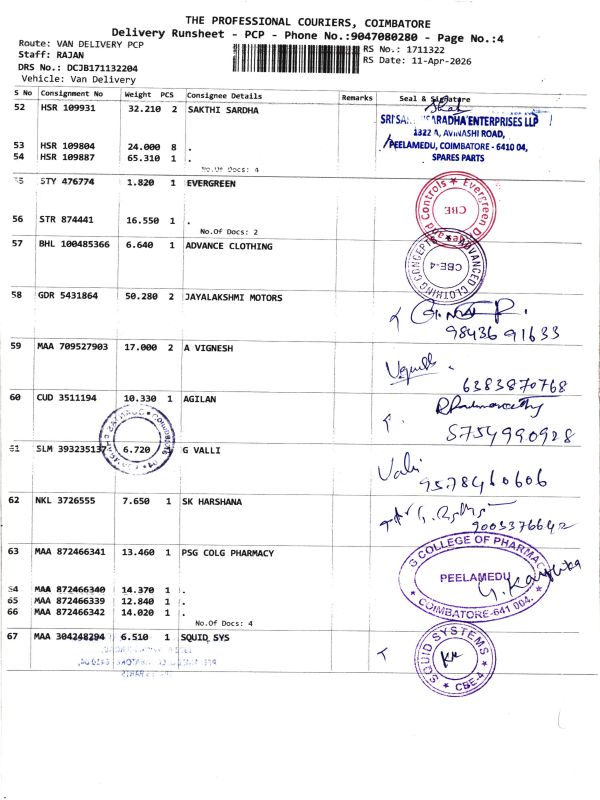 THE PROFESSIONAL COURIERS, COIMBATORE
Delivery Runsheet - PCP - Phone No.:9047080280 - Page No.:4
Route: VAN DELIVERY PCP
Staff: RAJAN
DRS No.: DCJB171132204
Vehicle: Van Delivery
RS No.: 1711322
RS Date: 11-Apr-2026
S No Consignment No Weight PCS Consignee Details Remarks Seal & Signature
52 HSR 109931 32.210 2 SAKTHI SARDHA
SARADHA ENTERPRISES LLP
1322 A, AVINASHI ROAD,
PEELAMEDU, COIMBATORE - 641 004,
SPARES PARTS
53 HSR 109804 24.000 8 .
54 HSR 109887 65.310 1 .
No.Of Docs: 4
55 STY 476774 1.820 1 EVERGREEN
Evergreen
Controls
CBE
56 STR 874441 16.550 1 .
No.Of Docs: 2
57 BHL 100485366 6.640 1 ADVANCE CLOTHING
ADVANCED CLOTHING CONCEPTS
CBE-4
58 GDR 5431864 50.280 2 JAYALAKSHMI MOTORS
98436 91633
59 MAA 709527903 17.000 2 A VIGNESH
6383870768
60 CUD 3511194 10.330 1 AGILAN
5754990928
61 SLM 393235137 6.720 1 G VALLI
Valli
9578460606
62 NKL 3726555 7.650 1 SK HARSHANA
9003376642
63 MAA 872466341 13.460 1 PSG COLG PHARMACY
G COLLEGE OF PHARMAC
PEELAMEDU
COIMBATORE-641 004.
64 MAA 872466340 14.370 1 .
65 MAA 872466339 12.840 1 .
66 MAA 872466342 14.020 1 .
No.Of Docs: 4
67 MAA 304248294 6.510 1 SQUID SYS
SQUID SYSTEMS
CBE-4